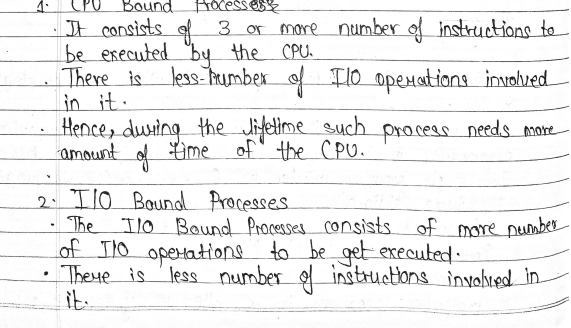 1. CPU Bound Processes
· It consists of 3 or more number of instructions to
be executed by the CPU.
· There is less-number of I/O operations involved
in it.
· Hence, during the lifetime such process needs more
amount of time of the CPU.
·
2. I/O Bound Processes
· The I/O Bound Processes consists of more number
of I/O operations to be get executed.
· There is less number of instructions involved in
it.